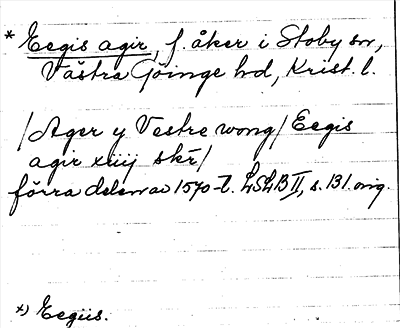 * Eegis agir, f. åker i Stoby sn,
Västra Göinge hd, Krist. l.
/Ager y Vestre wong/ Eegis
agir xiiij skr/
förra delen av 1570-t. LSLB II, s. 131. orig.
*) Eegiis.